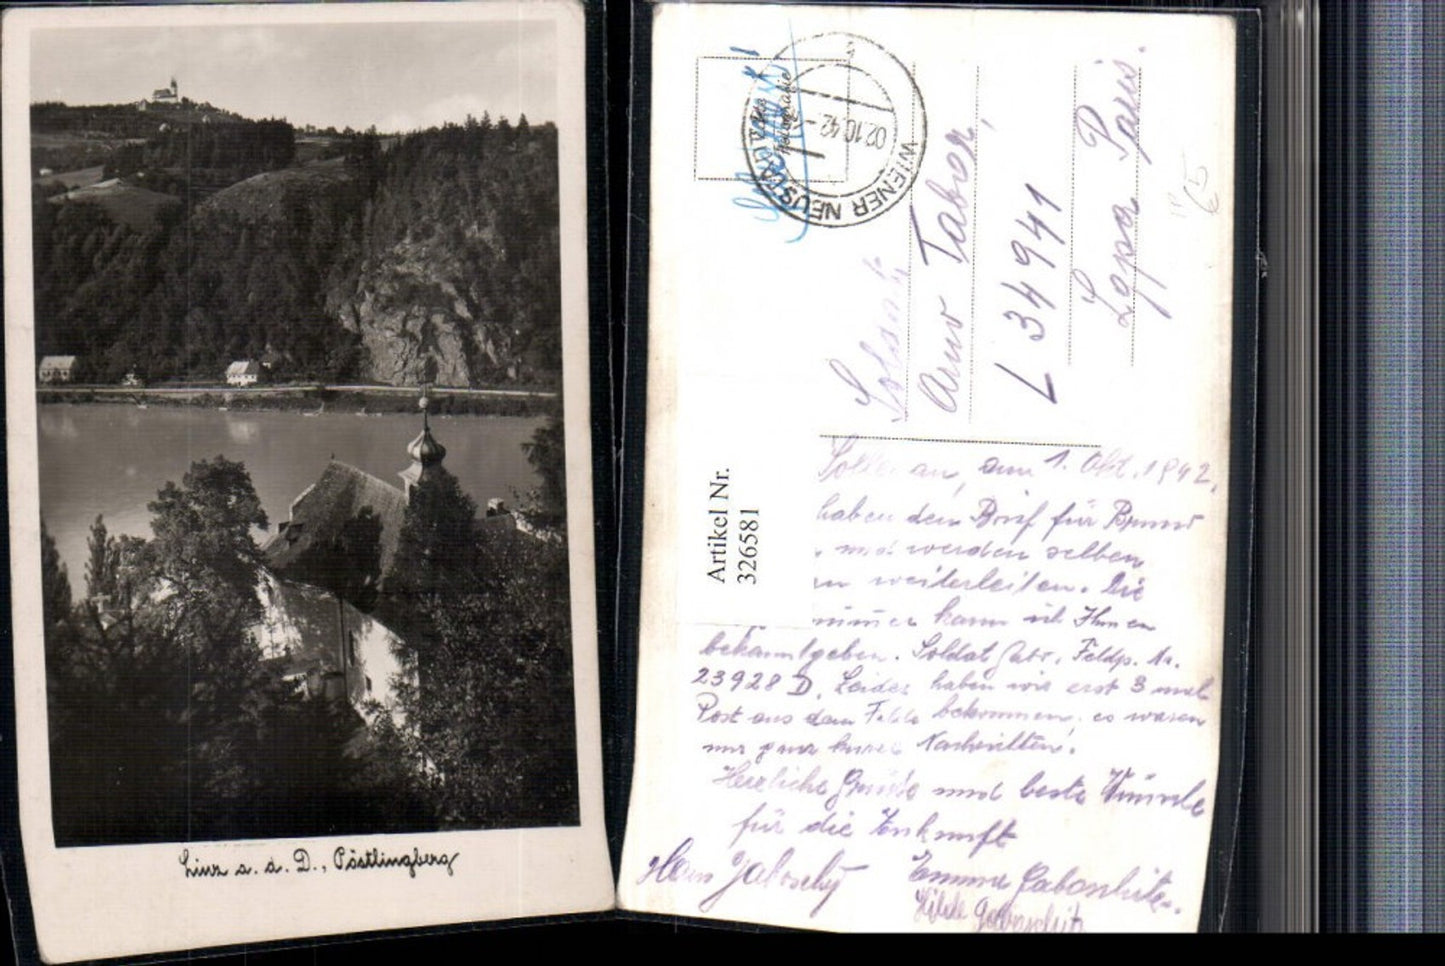 Linz a. d. D., Pöstlingberg
WIENER NEUSTADT
02.10.42
Soldat
Arno Tabor,
L 34941
Lgpa Paris.
Artikel Nr.
326581
an, am 1. Okt. 1942,
haben den Brief für Bruno
und werden selben
weiterleiten. Die
kann ich Ihnen
bekanntgeben. Soldat Feldp. Nr.
23928 D. Leider haben wir erst 3 mal
Post aus dem Felde bekommen, es waren
nur ganz kurze Nachrichten.
Herzliche Grüße und beste Wünsche
für die Zukunft
Hans
Emma
Hilde